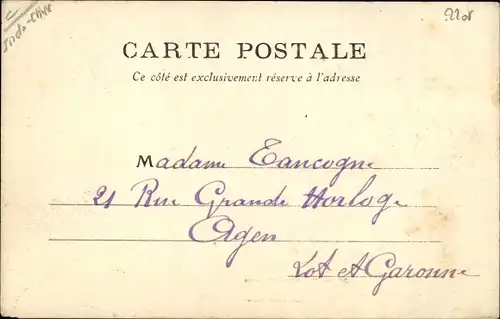 Indo-Chine
CARTE POSTALE
Ce côté est exclusivement réservé à l'adresse
Madame Tancogne
21 Rue Grande Horloge
Agen
Lot et Garonne